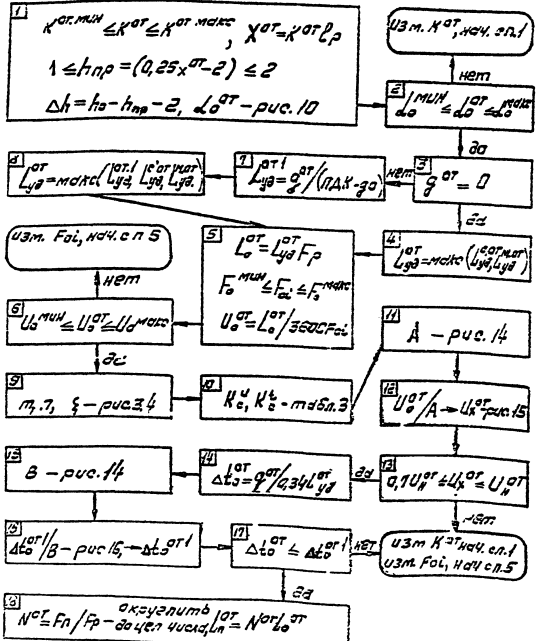 1
K^от.мин ≤ K^от ≤ K^от макс, X^от = K^от ℓр
1 ≤ hпр = (0,25x^от - 2) ≤ 2
Δh = hо - hпр - 2, αо^от - рис. 10
изм. K^от, нач. сп.1
нет
2
αо^мин ≤ αо^от ≤ αо^макс
да
3
q^от = 0
нет
7
L уд^от1 = q^от/(ПДК-qо)
8
L уд^от = макс(L уд^от.1, L уд^с.от, L уд^н.от)
да
4
L уд^от = макс(L уд^с.от, L уд^н.от)
5
Lо^от = L уд^от Fр
Fо^мин ≤ Fоi ≤ Fо^макс
Uо^от = Lо^от/3600Fоi
изм. Foi, нач. с п 5
нет
6
Uо^мин ≤ Uо^от ≤ Uо^макс
да
9
m, n, ξ - рис. 3,4
10
Kс^u, Kс^t - табл. 3
11
A - рис. 14
12
Uо^от/A → Uх^от - рис. 15
13
0,7Uн^от ≤ Uх^от ≤ Uн^от
нет
изм K^от нач. сп.1
изм. Foi, нач сп.5
да
14
Δtо^от = q^от/0,34L уд^от
B - рис. 14
Δtо^от1/B - рис 15, → Δtо^от1
17
Δtо^от ≤ Δtо^от1
нет
да
N^от = Fп/Fр - округлить до цел числа, Lп^от = N^от Lо^от